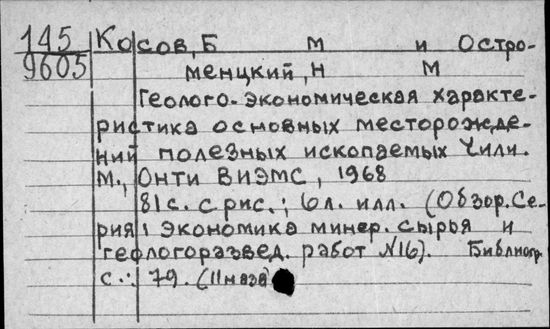 145 Косов, Б М и Остро-
9605 менцкий, Н М
Геолого-экономическая характе-
ристика основных месторожде-
ний полезных ископаемых Чили.
М., ОНТИ ВИЭМС, 1968
81 с. с рис.; 6 л. илл. (Обзор. Се-
рия: Экономика минер. сырья и
геологоразвед. работ №16). Библиогр.
с.: 79. (11 назв)